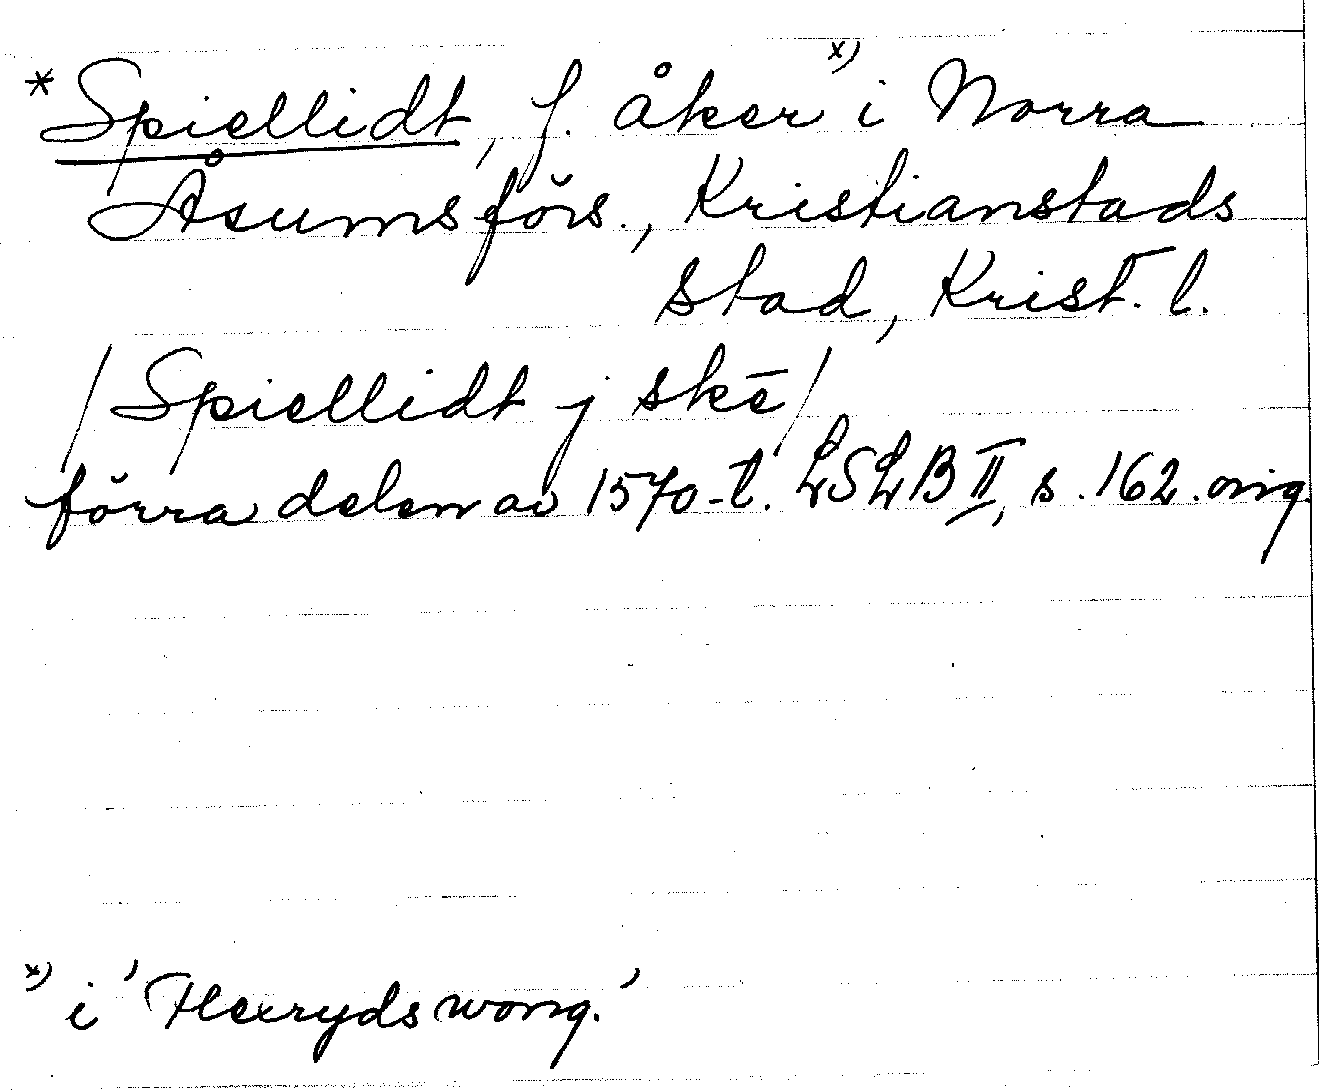 * Spiellidt, f. åker x) i Norra
Åsums förs., Kristianstads
stad, Krist. l.
/Spiellidt j skē/
förra delen av 1570-t. LSLB II, s. 162. orig
x) i 'Hexryds wong.'